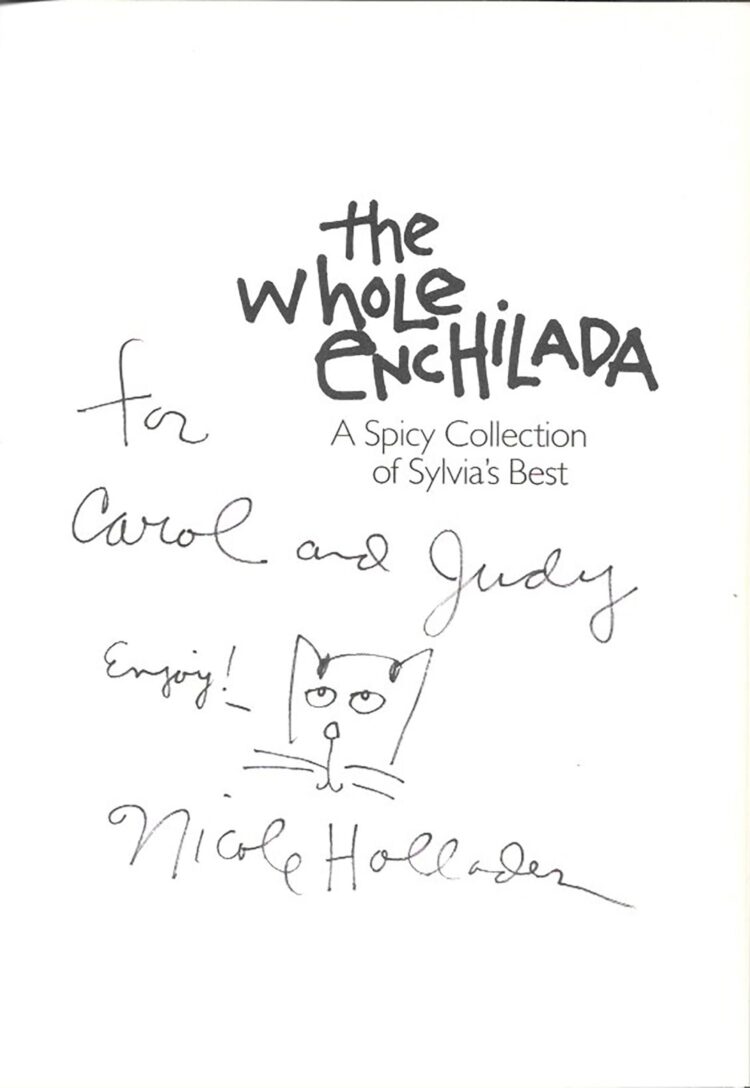 the
whole
ENCHiLADA
A Spicy Collection
of Sylvia's Best
for
Carol and Judy
Enjoy!
Nicole Hollander